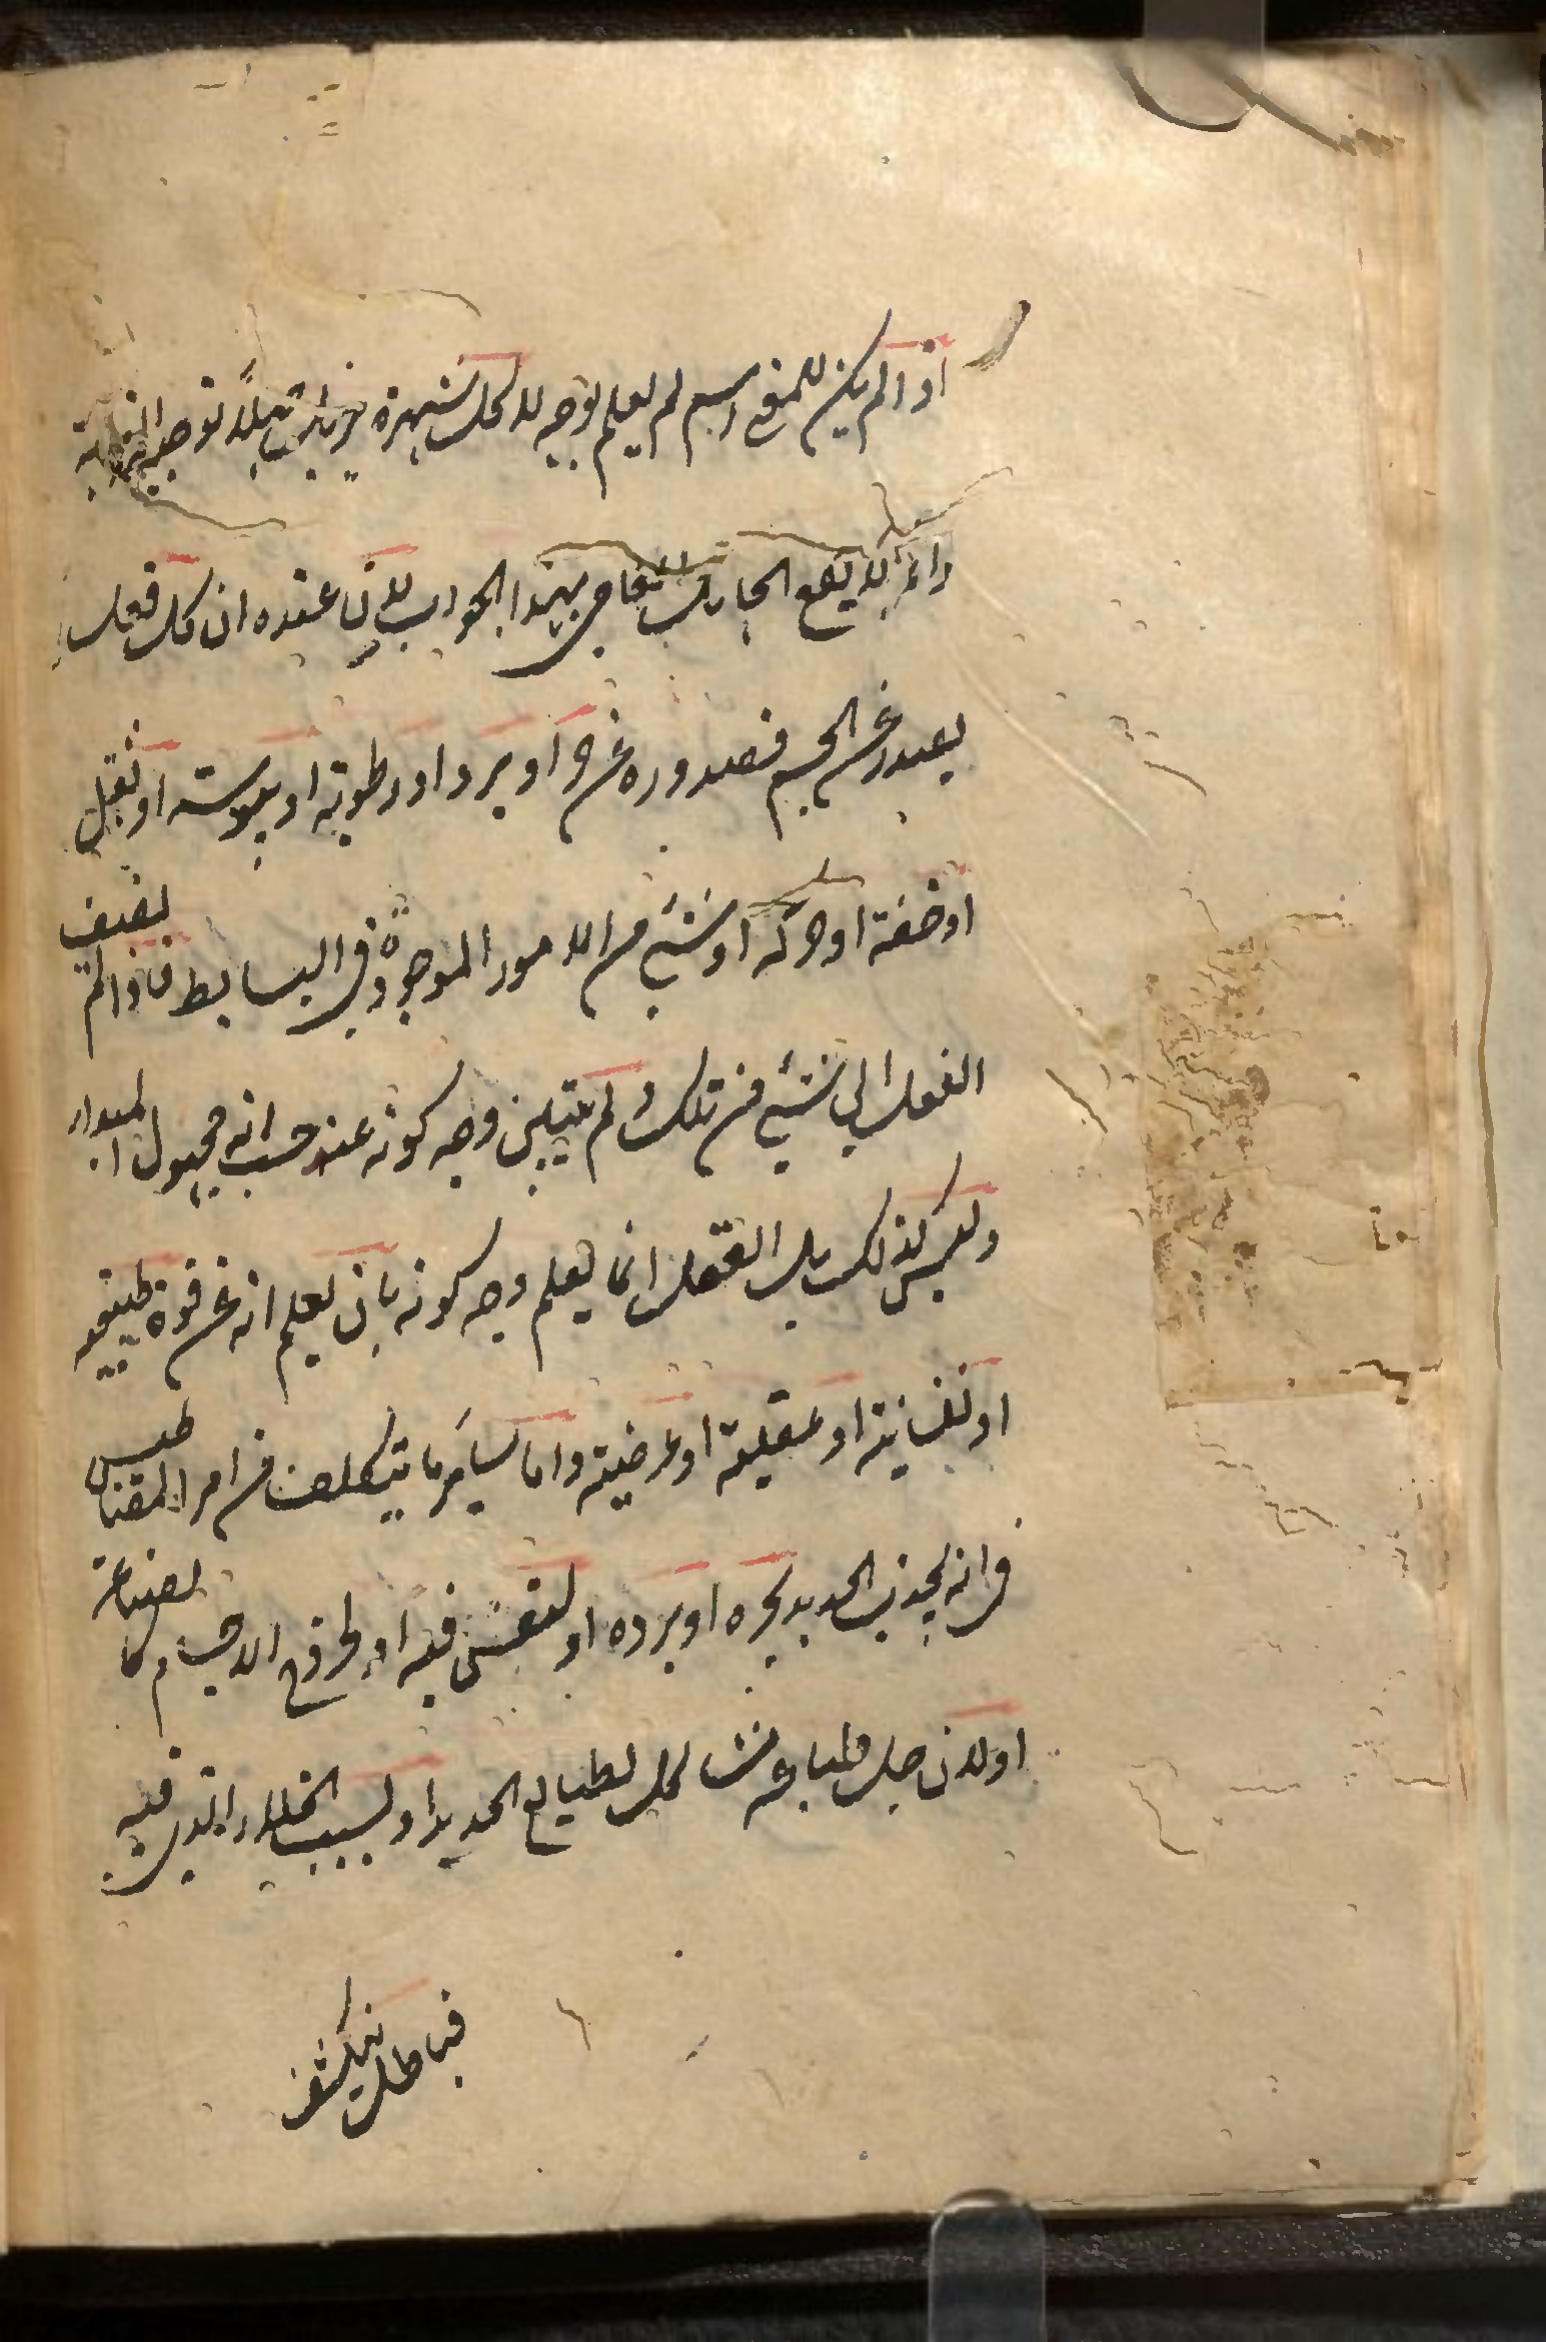 اذا لم يكن للمنع اسم لم يعلم بوجه لا لكل شهرة
وانما لا يقنع الجاهل العامي بهذا الجواب لان عنده ان كل فعل
يصدر عن الجسم فصدوره عن حر او برد او رطوبة او يبوسة او ثقل
او خفة او حركة او شيئ من الامور الموجودة في البسايط فاذا لم يضف
الفعل الى شيئ من تلك ولم يتبين وجه كونه عنه حسب انه مجهول المبدا
وليس كذلك بل الفعل انما يعلم وجه كونه بان يعلم انه عن قوة طبيعية
او نفسانية او عقلية او عرضية واما ساير ما يتكلف من امر المقناطيس
في انه يجذب الحديد بحره او برده او لنفس فيه او لخروج الاجسام
او لان جل طباعه مشاكل لطبايع الحديد او لسبب الخلاء الذي فيه
فباطل ينكشف